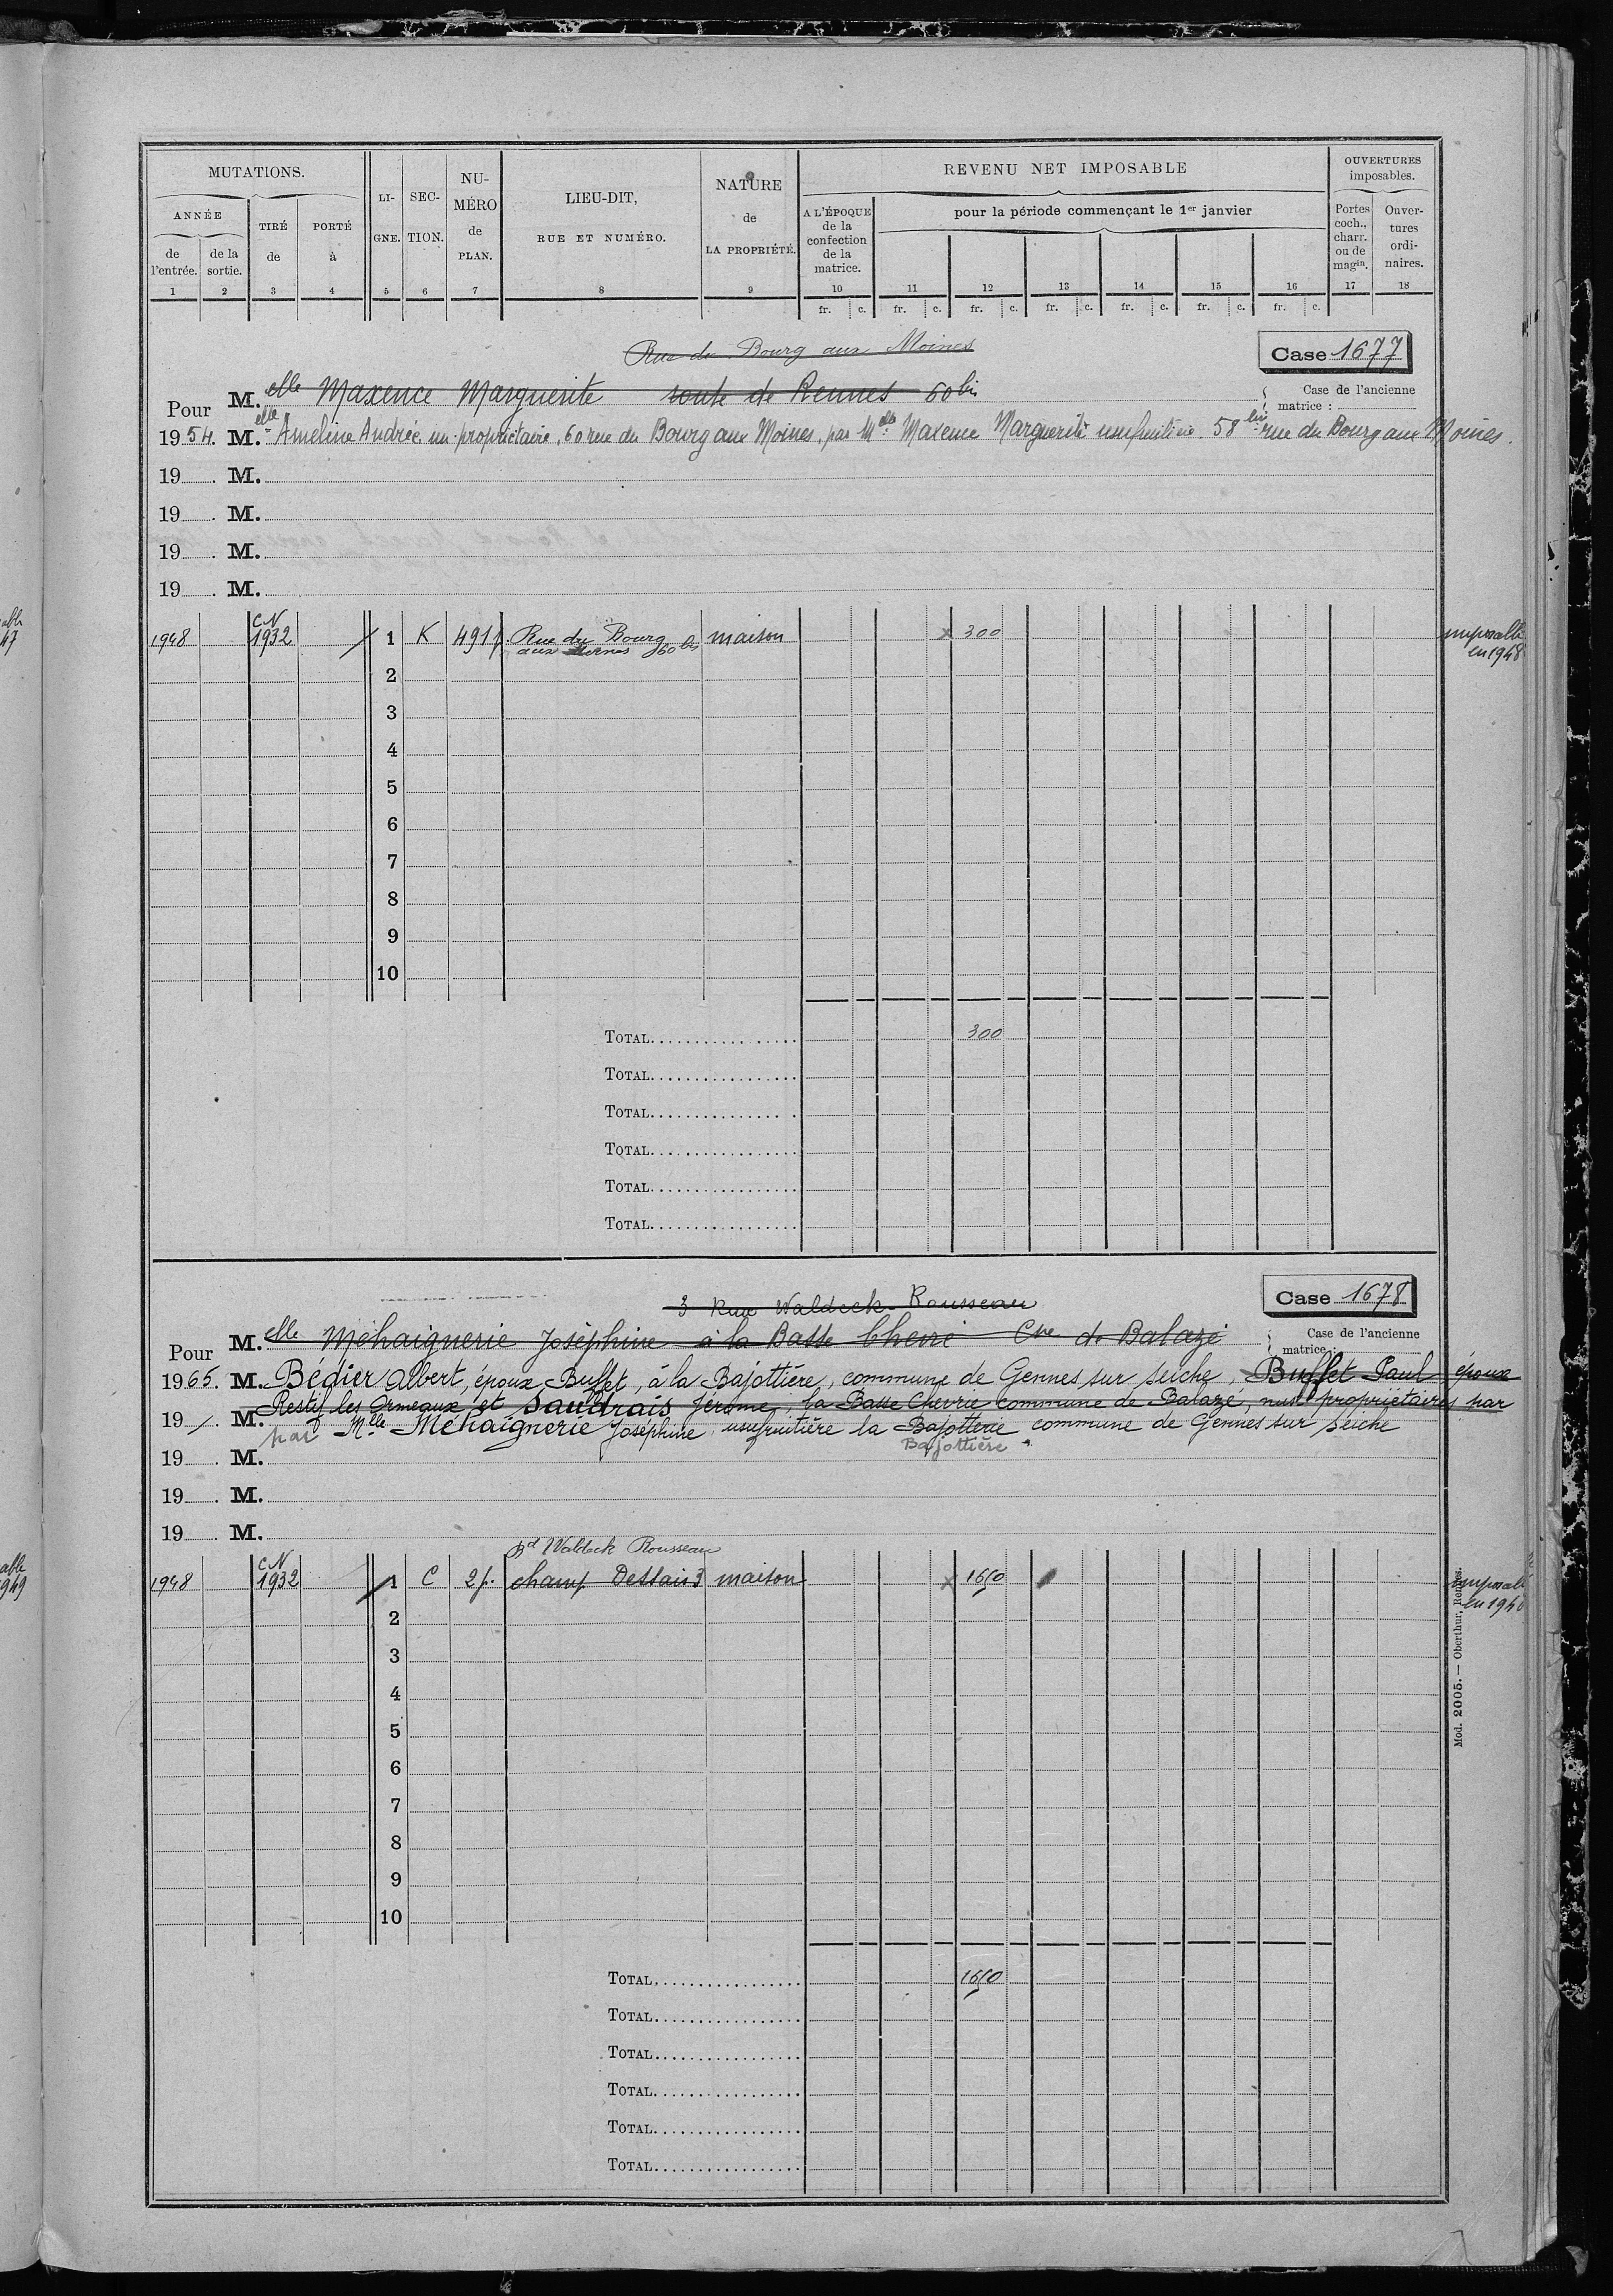 MUTATIONS.
ANNÉE
de l'entrée.
de la sortie.
TIRÉ de
PORTÉ à
LI-GNE.
SEC-TION.
NU-MÉRO de PLAN.
LIEU-DIT,
RUE ET NUMÉRO.
NATURE
de
LA PROPRIÉTÉ.
REVENU NET IMPOSABLE
A L'ÉPOQUE de la confection de la matrice.
pour la période commençant le 1er janvier
OUVERTURES imposables.
Portes coch., charr. ou de magin.
Ouver-tures ordi-naires.
1 2 3 4 5 6 7 8 9 10 11 12 13 14 15 16 17 18
fr. c. fr. c. fr. c. fr. c. fr. c. fr. c. fr. c.
Rue du Bourg aux Moines
Case 1677
Pour M.elle Maxence Marguerite route de Rennes 60 bis
Case de l'ancienne matrice :
1954. M.elle Ameline Andrée nu-propriétaire, 60 rue du Bourg aux Moines, par Melle Maxence Marguerite usufruitière 58 bis rue du Bourg aux Moines.
19 . M.
19 . M.
19 . M.
19 . M.
1948 CN 1932 1 K 491 p. Rue du Bourg aux Moines 60 bis maison x 300 imposable en 1948
2
3
4
5
6
7
8
9
10
TOTAL 300
TOTAL
TOTAL
TOTAL
TOTAL
TOTAL
3 Rue Waldeck-Rousseau
Case 1678
Pour M.elle Méhaignerie Joséphine à la Basse Cherri Cne de Balazé
Case de l'ancienne matrice :
1965. M. Bédier Albert, époux Buffet, à la Bajottière, commune de Gennes sur Seiche, Buffet Paul époux
19 . M. Restif les Ormeaux et Saudrais Jérome, la Basse Chevrie commune de Balazé, nus propriétaires par
par Mlle Méhaignerie Joséphine usufruitière la Bajotterie commune de Gennes sur Seiche
Bajottière
19 . M.
19 . M.
19 . M.
Bd Waldeck Rousseau
1948 CN 1932 1 C 2 p. champ Dessais 3 maison x 1650
2
3
4
5
6
7
8
9
10
TOTAL 1650
TOTAL
TOTAL
TOTAL
TOTAL
TOTAL
Mod. 2005. — Oberthur, Rennes.